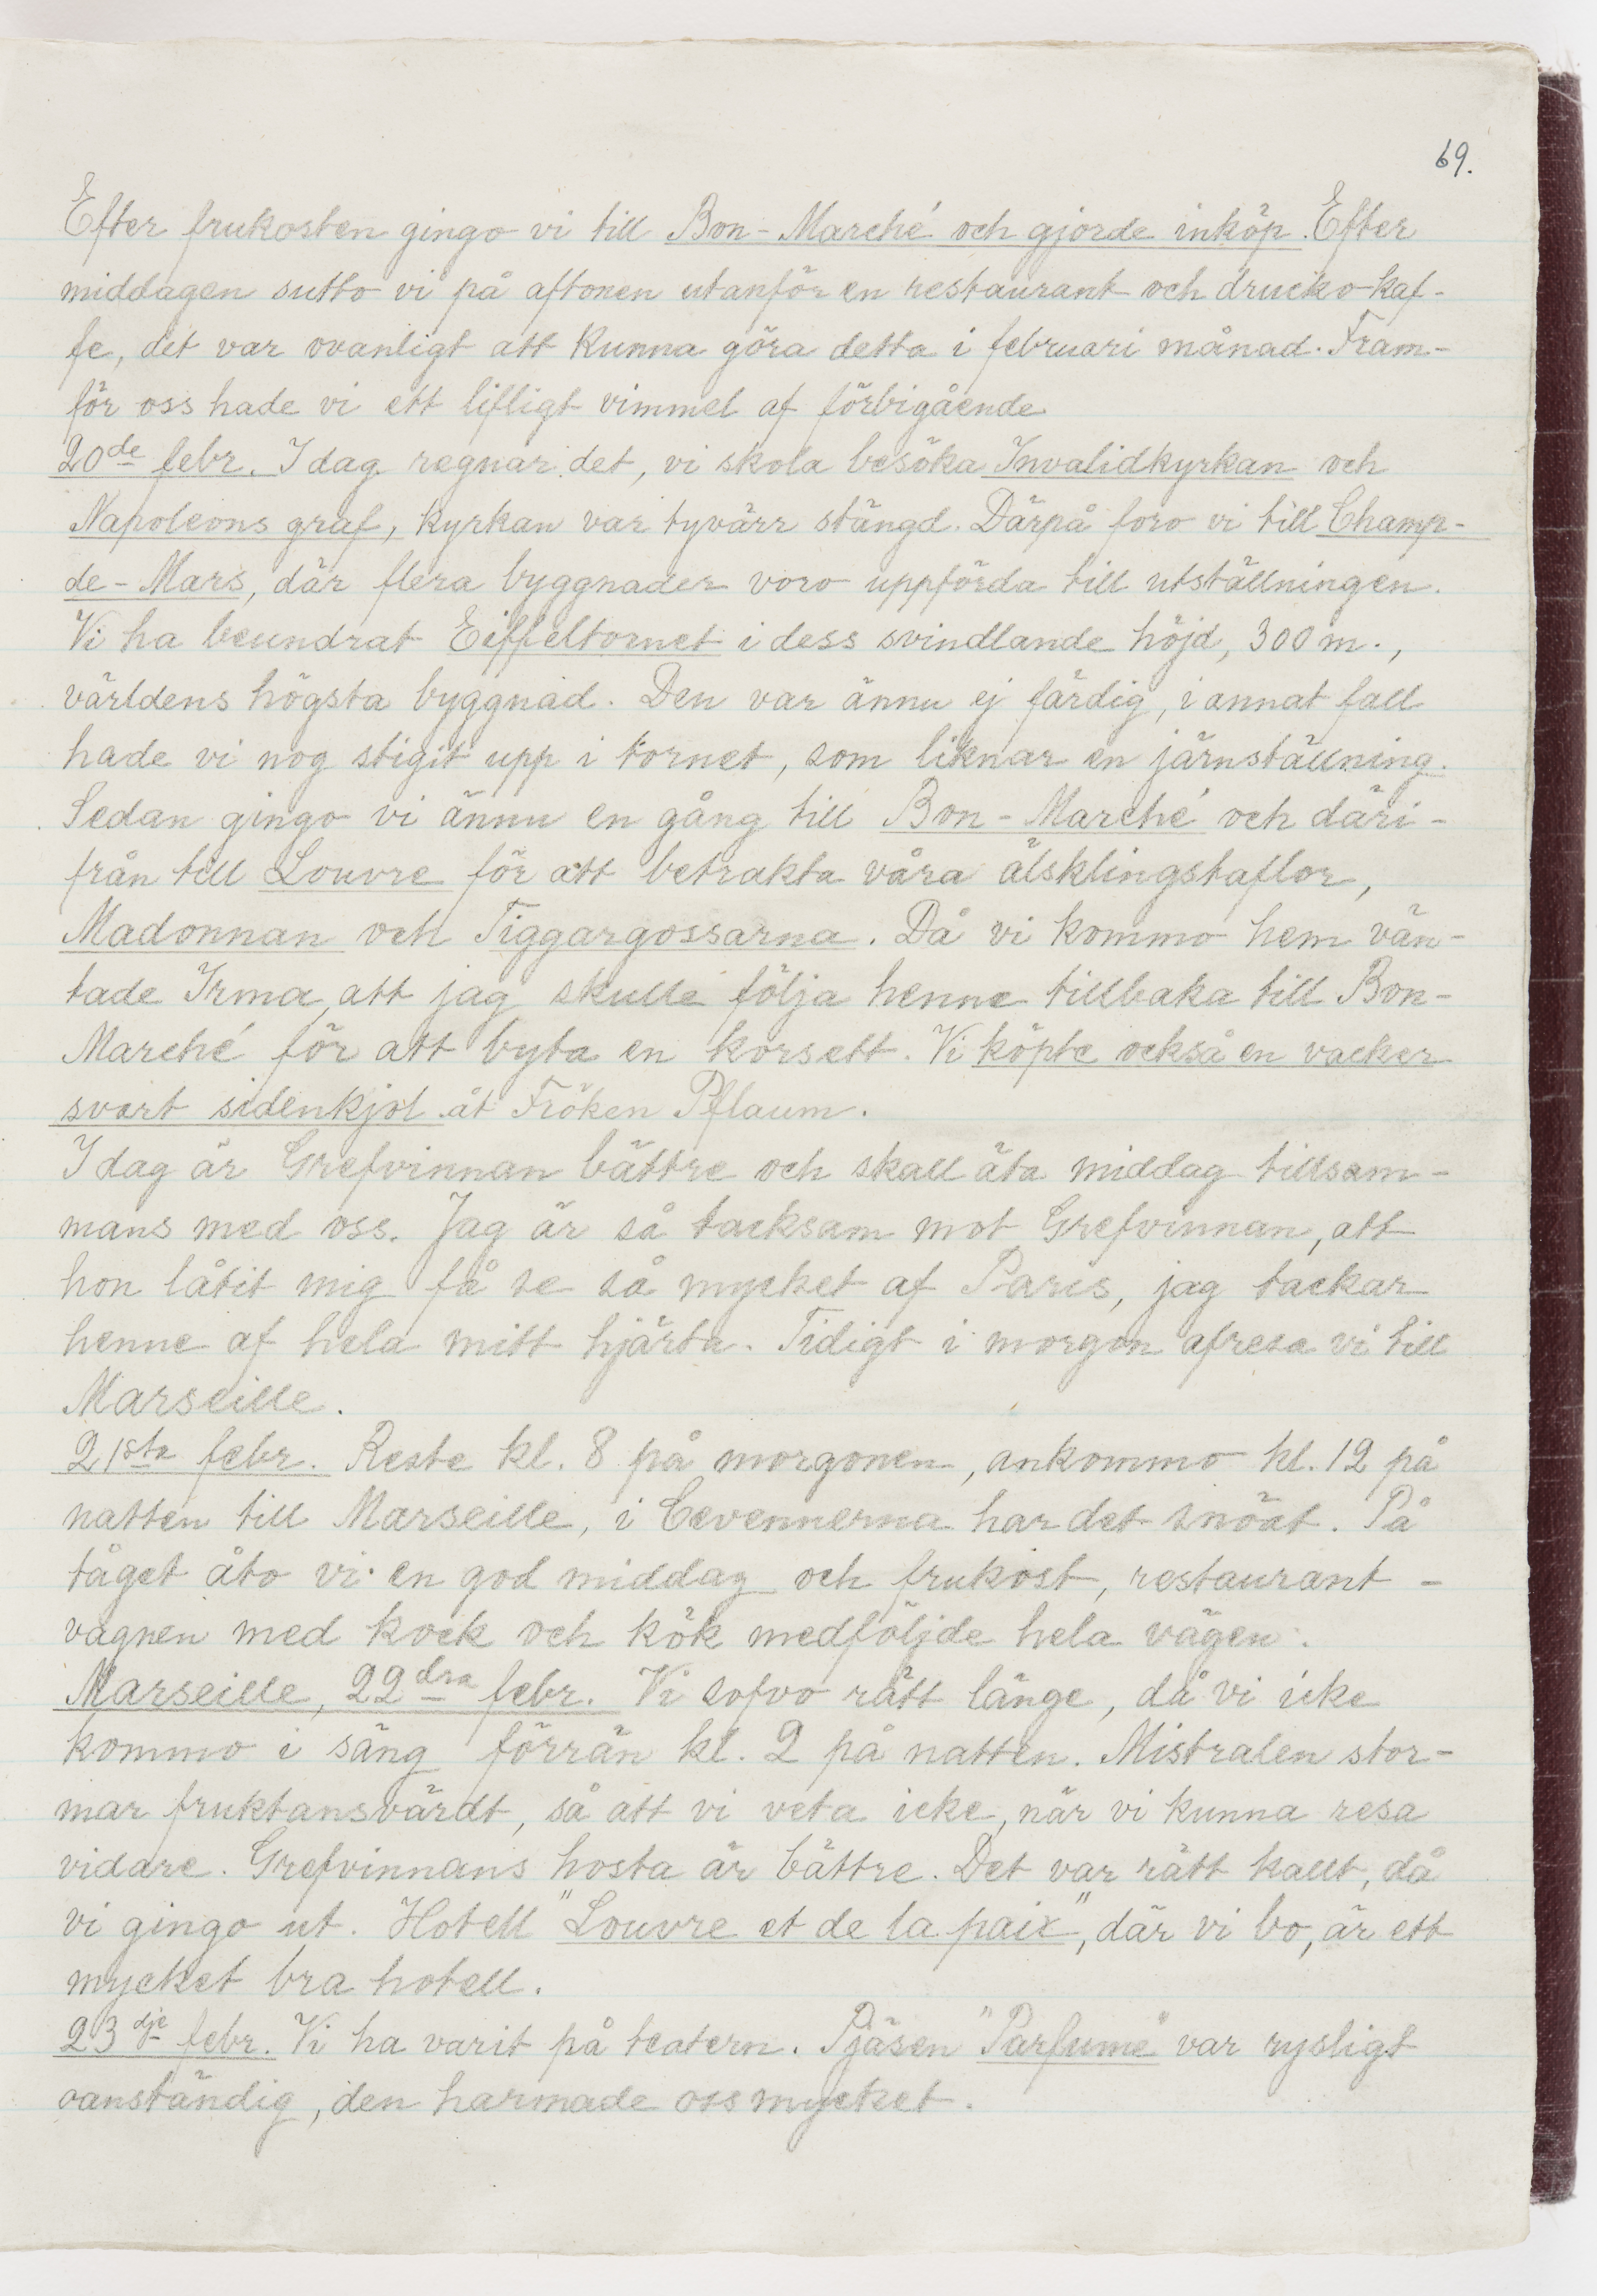 69.
Efter frukosten gingo vi till Bon-Marché och gjorde inköp. Efter
middagen sutto vi på aftonen utanför en restaurant och drucko kaf-
fe, det var ovanligt att kunna göra detta i februari månad. Fram-
för oss hade vi ett lifligt vimmel af förbigående
20de febr. I dag regnar det, vi skola besöka Invalidkyrkan och
Napoleons graf, kyrkan var tyvärr stängd. Därpå foro vi till Champ-
de-Mars, där flera byggnader voro uppförda till utställningen.
Vi ha beundrat Eiffeltornet i dess svindlande höjd, 300 m.,
världens högsta byggnad. Den var ännu ej färdig, i annat fall
hade vi nog stigit upp i tornet, som liknar en järnställning.
Sedan gingo vi ännu en gång till Bon-Marché och däri-
från till Louvre för att betrakta våra älsklingstaflor,
Madonnan och Tiggargossarna. Då vi kommo hem vän-
tade Irma, att jag skulle följa henne tillbaka till Bon-
Marché för att byta en korsett. Vi köpte också en vacker
svart sidenkjol åt Fröken Pflaum.
I dag är Grefvinnan bättre och skall äta middag tillsam-
mans med oss. Jag är så tacksam mot Grefvinnan, att
hon låtit mig få se så mycket af Paris, jag tackar
henne af hela mitt hjärta. Tidigt i morgon afresa vi till
Marseille.
21sta febr. Reste kl. 8 på morgonen, ankommo kl. 12 på
natten till Marseille, i Cevennerna har det snöat. På
tåget åto vi en god middag och frukost, restaurant-
vagnen med kock och kök medföljde hela vägen.
Marseille, 22dra febr. Vi sofvo rätt länge, då vi icke
kommo i säng förrän kl. 2 på natten. Mistralen stor-
mar fruktansvärdt, så att vi veta icke, när vi kunna resa
vidare. Grefvinnans hosta är bättre. Det var rätt kallt, då
vi gingo ut. Hotell "Louvre et de la paix", där vi bo, är ett
mycket bra hotell.
23dje febr. Vi ha varit på teatern. Pjäsen "Parfume" var rysligt
oanständig, den harmade oss mycket.